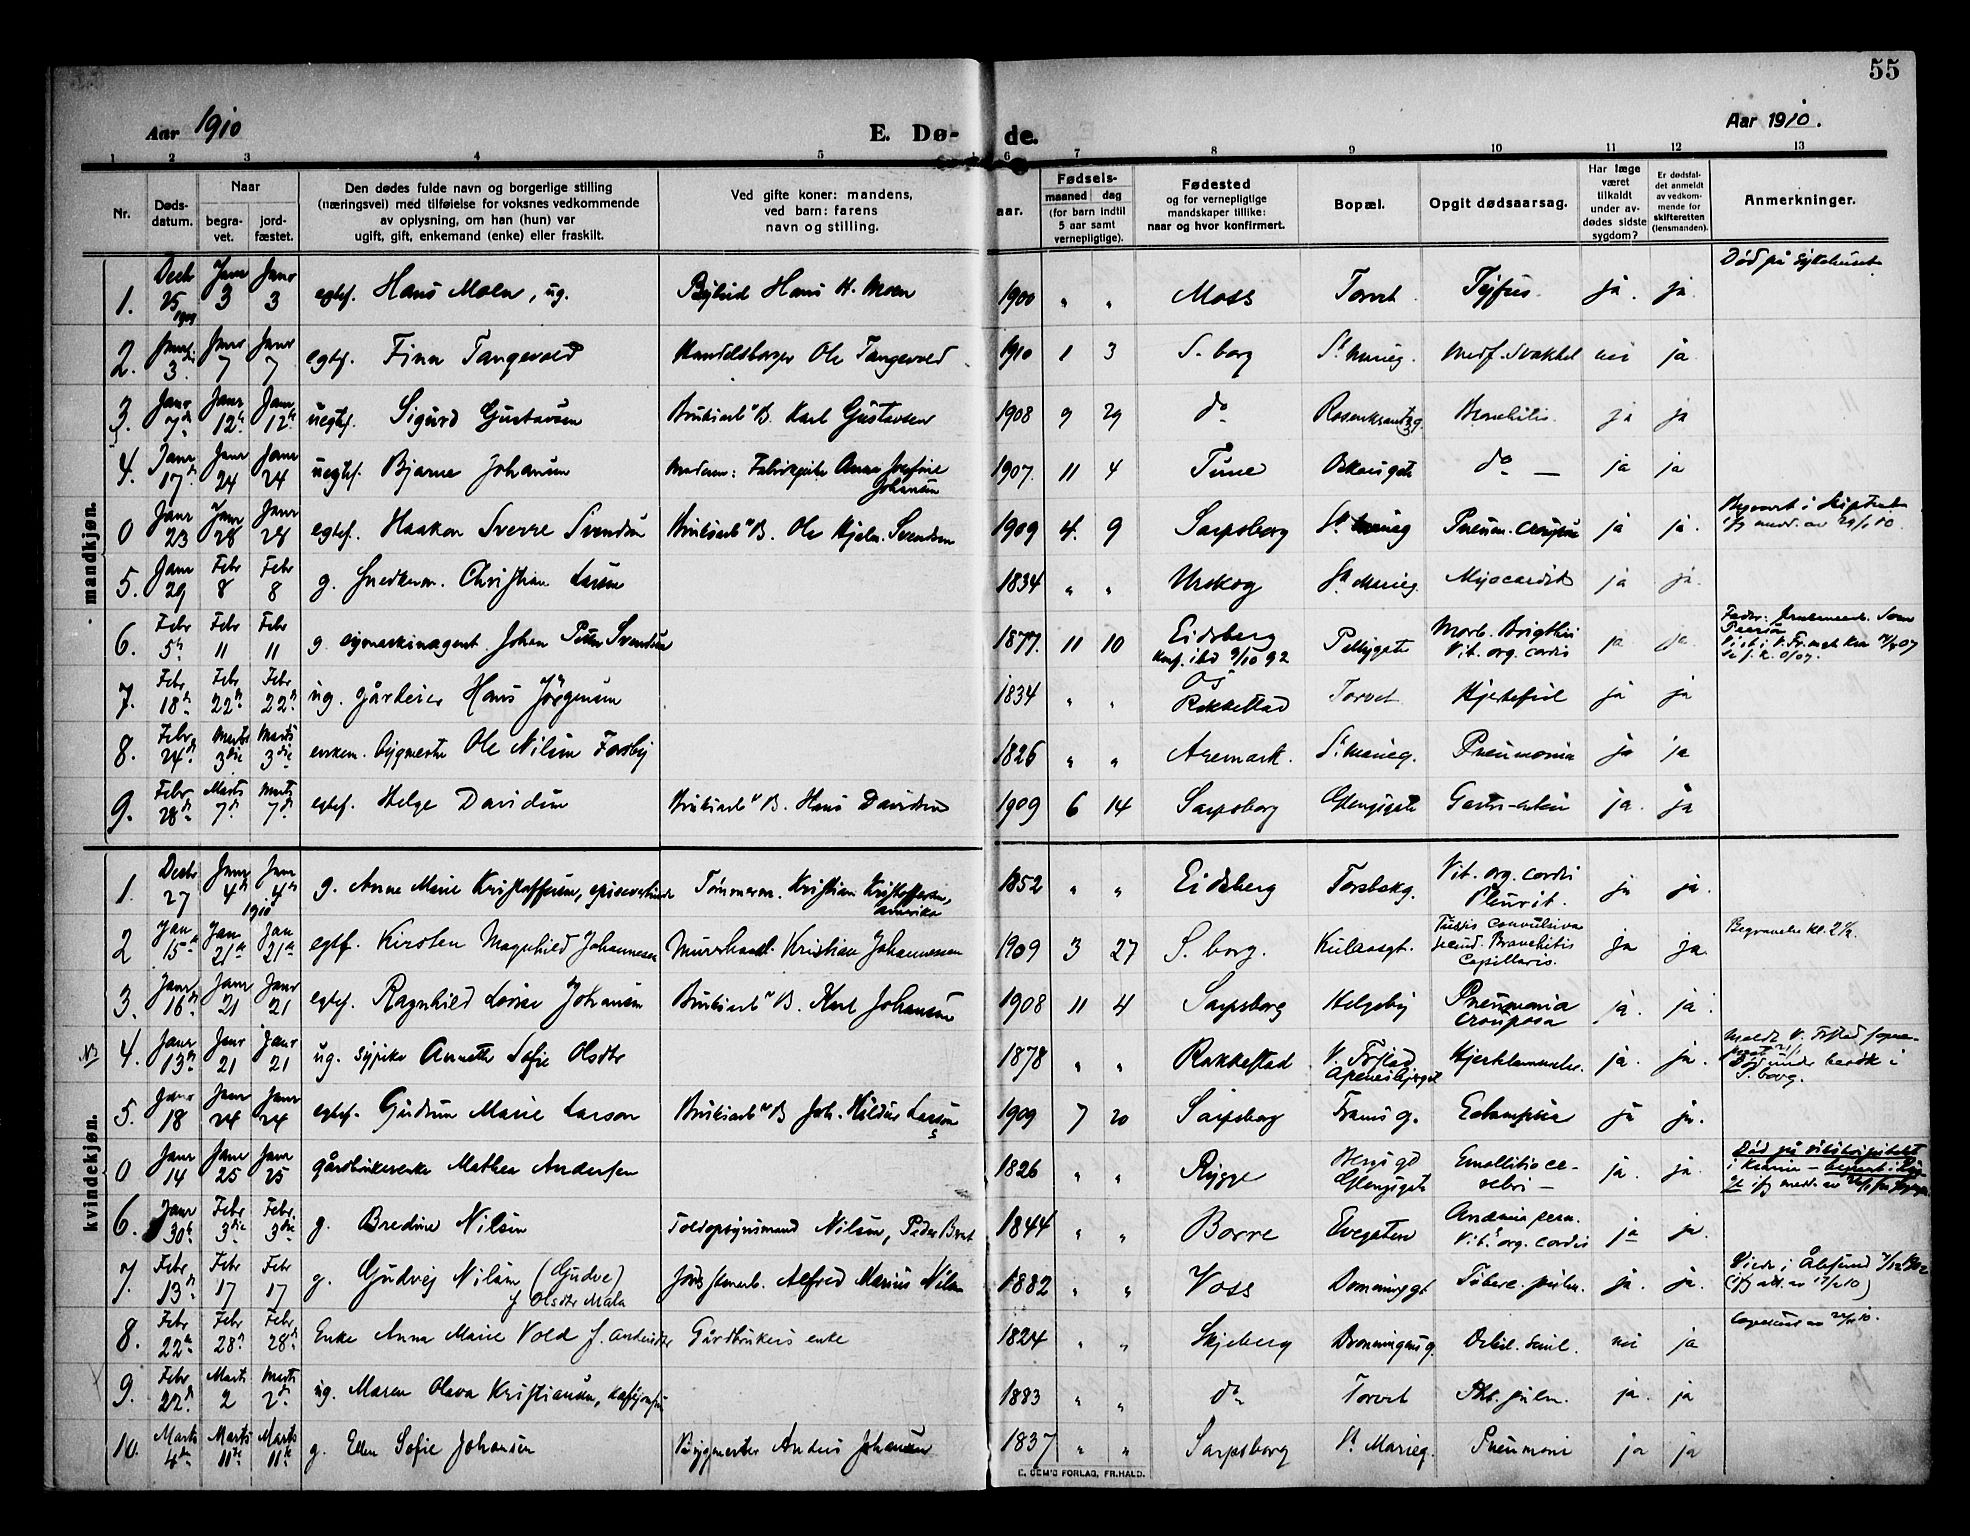 55
Aar 1910
E. Dø- de.
Aar 1910.
1 2 3 4 5 6 7 8 9 10 11 12 13
Nr.
Døds-
datum.
Naar
begra-
vet.
jord-
fæstet.
Den dødes fulde navn og borgerlige stilling
(næringsvei) med tilføielse for voksnes vedkommende
av oplysning, om han (hun) var
ugift, gift, enkemand (enke) eller fraskilt.
Ved gifte koner: mandens,
ved barn: farens
navn og stilling.
aar.
Fødsels-
maaned dag
(for barn indtil
5 aar samt
vernepligtige).
Fødested
og for vernepligtige
mandskaper tillike:
naar og hvor konfirmert.
Bopæl.
Opgit dødsaarsag.
Har læge
været
tilkaldt
under av-
dødes sidste
sygdom?
Er dødsfal-
det anmeldt
av vedkom-
mende for
skifteretten
(lensmanden).
Anmerkninger.
mandkjøn.
1. Decbr 25 1909 Janr 3 Janr 3 egtef. Hans Moen, ug. Hans H. Moen 1900 " " Moss Torvet Tyfus ja. ja. Død på sykehuset
2. 3 Janr 7 Janr 7 egtef. Finn Tangevold Handelsborger Ole Tangevold 1910 1 3 S.borg St. Marieg. Medf. Svakhet nei ja
3. Janr 7de Janr 12te Janr 12te uegtef. Sigurd Gustavsen Bruksarb. v. B. Karl Gustavsen 1908 9 29 do Rosenkrantzg. Bronchitis ja ja
4. Janr 17de Janr 24 Janr 24 uegtef. Bjarne Johansen Moderen: Fabrikpike Anna Josefine
Johansen 1907. 11 4 Tune Oskarsgate do — ja ja
0 Janr 23 Janr 28 Janr 28 egtef. Haakon Sverre Svendsen Bruksarb. v. B. Ole Hjalm. Svendsen 1909 4. 9 Sarpsborg St. Marieg Pneum. Croupøs ja ja. Begravet i Skiptvet
ifg medd. av 29/1 10.
5. Janr 29 Febr 8 Febr 8 g. Snedkerm. Christian Larsen 1834 " " Urskog St. Marieg. Myocardit ja ja.
6. Febr 5te Febr 11 Febr 11 g. symaskinagent Johan Petter Svendsen 1877. 11 10 Eidsberg
Konf. ibd 9/10 92 Pellygate Morb. Brigthii
Vit. org. cordis ja ja.
7. Febr 18de Febr 22de Febr 22de ug. gårdeier Hans Jörgensen 1834 " " Rakkestad Torvet Hjertefeil ja ja
8. Febr 24de Marts 3die Marts 3die enkem. bygmester Ole Nilsen Forsby 1826 " " Aremark. St. Marieg. Pneumonia ja ja
9. Febr 28de Marts 7de Marts 7de egtef. Helge Davidsen Bruksarb. v. B. Hans Davidsen 1909 6 14 Sarpsborg Glengsgate ja. ja
kvindekjøn.
1. Decbr 27 Janr 4de 1910 Janr 4de g. Anne Marie Kristoffersen, Tømmerm. Kristian Kristoffersen,
Amerika 1852 " " Eidsberg Torsbekg. Vit. org. cordis
Pleurit. ja ja.
2 Jan 15de Jan 21de Jan 21de egtef. Kirsten Magnhild Johannesen Kristian Johannessen 1909 3 27 S.borg. Kulaasgt. Tussis convulsiva
secund. Bronchitis
Capillaris. ja ja. Begravelse kl. 2½.
3. Janr 16de Janr 21 Janr 21 egtef. Ragnhild Lovise Johansen Bruksarb. v. B. Karl Johansen 1908 11 4 Sarpsborg Helgeby Pneumonia
crouposa ja. ja.
4. Janr 13de Janr 21 Janr 21 ug. sypike Annette Sofie Olsdtr 1878 " " Rakkestad V. Fr.stad
Apenesbjerget Hjertelammelse. ja. ja. Død under besök i
S.borg.
5. Janr 18 Janr 24 Janr 24 egtef. Gudrun Marie Larson Bruksarb. v. B Joh. Hildus Larson 1909 7 20 Sarpsborg Framsg. Eclampsia ja ja.
0 Janr 14 Janr 25 Janr 25 gårdbrukerenke Mathea Andersen 1826 " " Rygge
Glengsgate Emollitio ce-
rebri — ja. ja. Død på
i Kr.ania
6. Janr 30te Febr 3die Febr. 3die g. Bredine Nilsen Toldopsynsmand Nilsen, 1844 " " Borre Evegaten Anæmia pern.
Vit. org. cordis ja ja.
7. Febr 13de Febr 17 Febr 17 g. Gudvej Nilsen (Gudve)
f. Olsdtr Mæla Alfred Marius Nilsen 1882 " " Voss Dronningsgt Tuberc. pulm. ja. ja. Viede i Ålesund
8. Febr 22de Febr. 28de Febr. 28de Enke Anna Marie Vold f. Andersdtr Gårdbrukers enke 1824 " " Skjeberg Dronningensg. Debil. senil. nei ja
9. Febr 22de Marts 2 Marts 2de ug. Maren Olava Kristiansen, 1883 " " do Torvet Pht. pulm. ja. ja
10. Marts 4de Marts 11te Marts 11te g. Ellen Sofie Johansen Bygmester Anders Johansen 1837 " " Sarpsborg St. Marieg. Pneumoni ja ja
E. SEM'S FORLAG, FR.HALD.